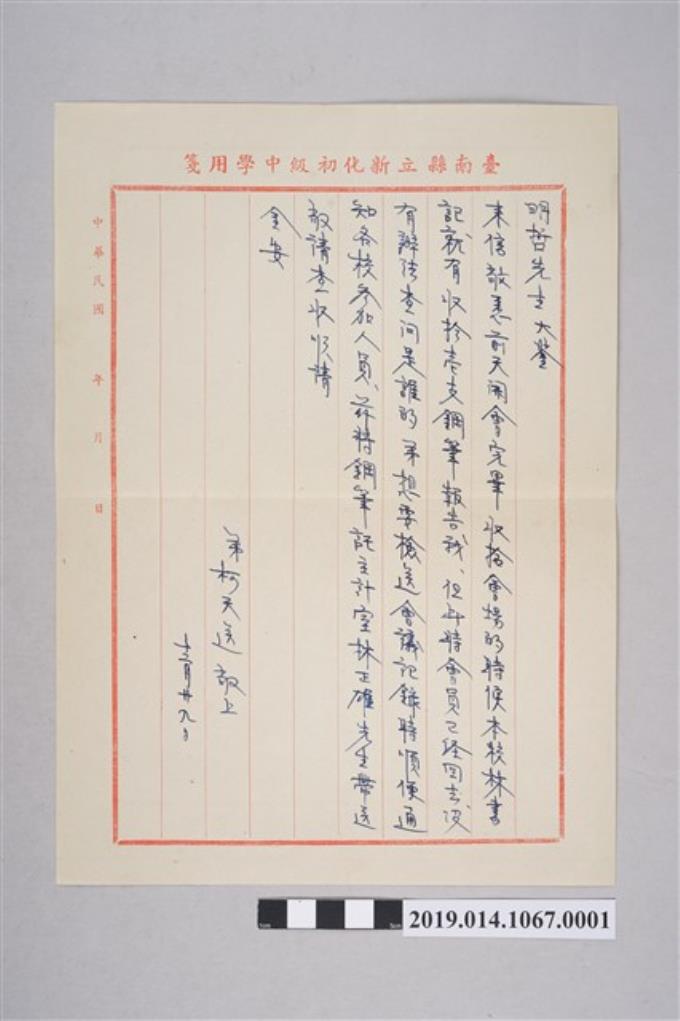 臺南縣立新化初級中學用箋
明哲先生大鑒
來信敬悉前天開會完畢收拾會場的時候本校林書
記就有收拾壱支鋼筆報告我、但此時會員已経回去沒
有辦法查问是誰的弟想要檢送會議記錄時順便通
知各校參加人員、茲將鋼筆託主計室林正雄先生帶送
敬請查收順請
金安
弟柯天送敬上
十二月廿九日
中華民國 年 月 日
5cm
2019.014.1067.0001